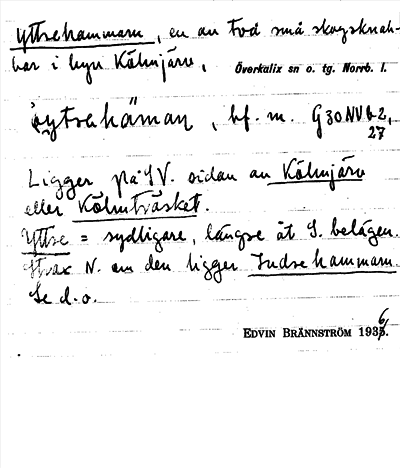 Yttrehammarn, en av två små skogsknab-
bar i byn Kölmjärv.
Överkalix sn o. tg. Norrb. l.
ytrahäman, bf. m. G30NV b2,
27
Ligger på SV. sidan av Kölmjärv
eller Kölmträsket.
Yttre = sydligare, längre åt S. belägen.
Strax N. om den ligger Indrehammarn.
Se d. o.
EDVIN BRÄNNSTRÖM 1936.